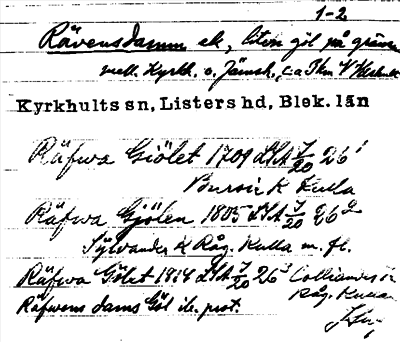 1-2
Rävensdamm ek, liten göl på gränsen
mell. Kyrkh. o. Jämsh., c:a 1km V
Kyrkhults sn, Listers hd, Blek. län
Räfwa Giölet 1709 LSA J/20 26¹
Burvik K Kulla
Räfwa Gjölen 1805 LSA J/20 26²
Sylvander K Råg. Kulla m. fl.
Räfwa Gölet 1814 LSA J/20 26³ Colliander K
Råg. Kulla
Räfwens dams Göl ib. prot.